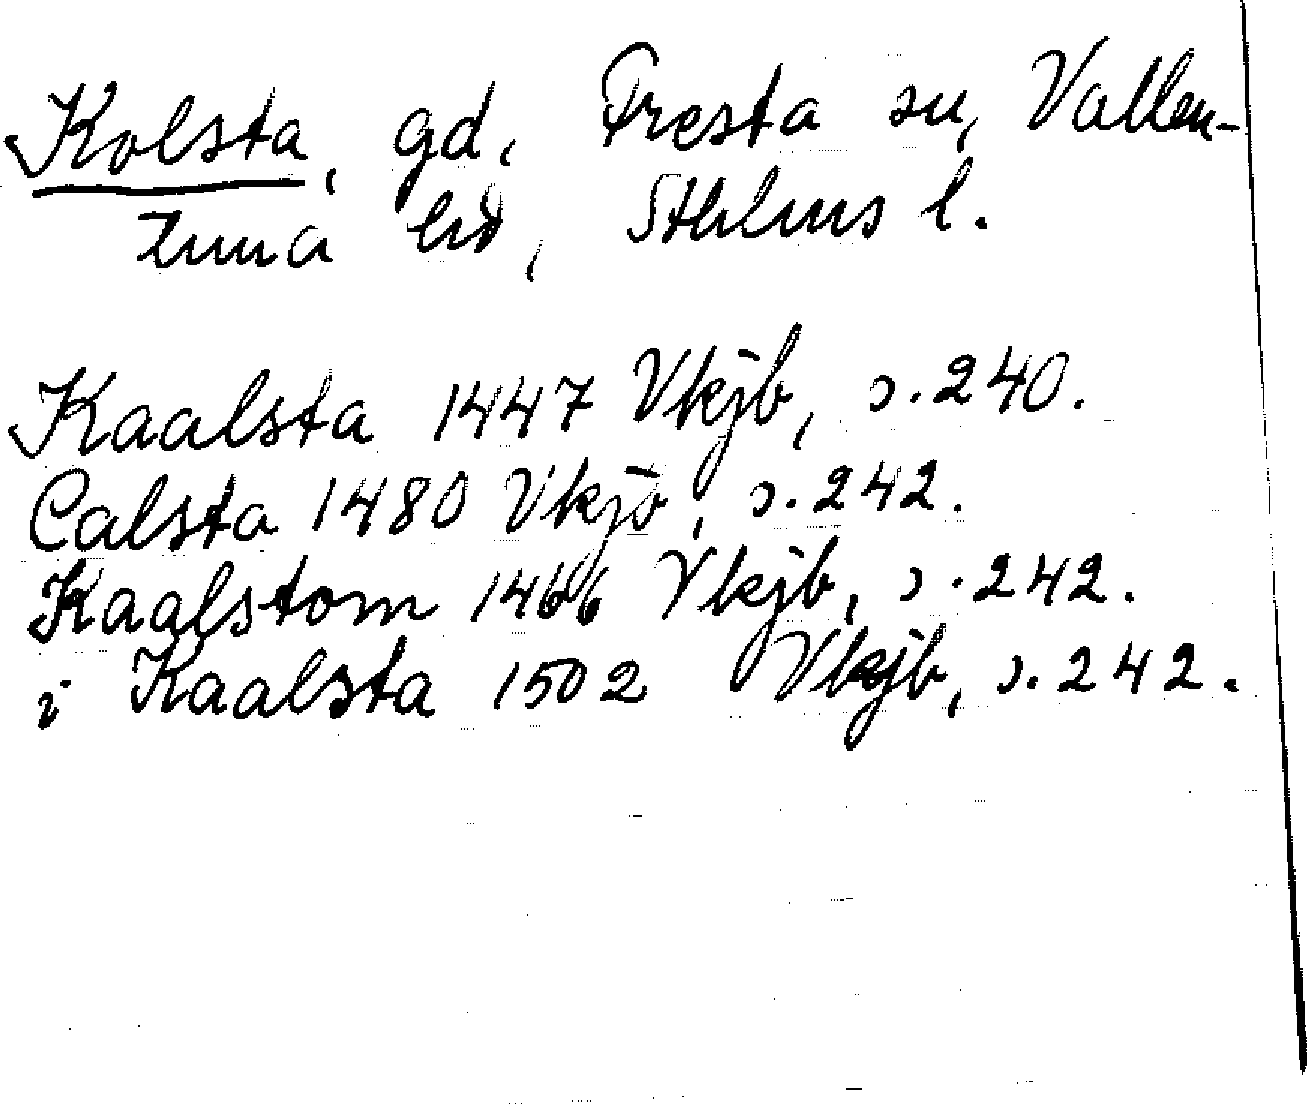 Kolsta, gd, Fresta sn, Vallen-
tuna hd, Sthlms l.
Kaalsta 1447 Vkjb, s. 240.
Calsta 1480 Vkjb, s. 242.
Kaalstom 1466 Vkjb, s. 242.
i Kaalsta 1502 Vkjb, s. 242.